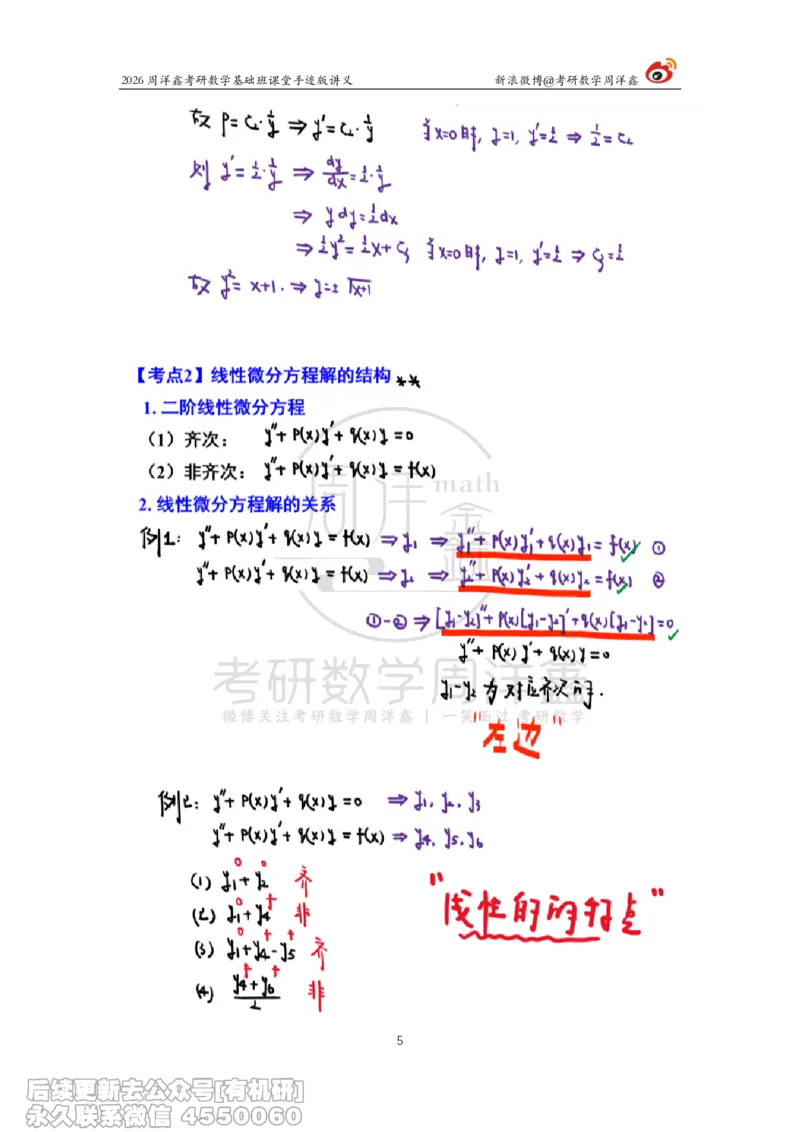 2026 周洋鑫考研数学基础班课堂手迹版讲义 新浪微博@考研数学周洋鑫
故 p=C₁·1/y ⇒ y'=C₁·1/y 当x=0时, y=1, y'=1/2 ⇒ 1/2=C₁
则 y'=1/2·1/y ⇒ dy/dx=1/2·1/y
⇒ ydy=1/2dx
⇒ 1/2y²=1/2x+C₂ 当x=0时, y=1, y'=1/2 ⇒ C₂=1/2
故 y²=x+1. ⇒ y=±√x+1
【考点2】线性微分方程解的结构 **
1. 二阶线性微分方程
(1)齐次: y''+P(x)y'+q(x)y=0
(2)非齐次: y''+P(x)y'+q(x)y=f(x)
2. 线性微分方程解的关系
例1: y''+P(x)y'+q(x)y=f(x) ⇒ y₁ ⇒ y₁''+P(x)y₁'+q(x)y₁=f(x) ①
y''+P(x)y'+q(x)y=f(x) ⇒ y₂ ⇒ y₂''+P(x)y₂'+q(x)y₂=f(x) ②
①-② ⇒ [y₁-y₂]''+P(x)[y₁-y₂]'+q(x)[y₁-y₂]=0
y''+P(x)y'+q(x)y=0
y₁-y₂ 为对应齐次的解.
"左边"
周洋鑫 math
考研数学周洋鑫
微博关注考研数学周洋鑫 | 一笑而过 考研数学
例2: y''+P(x)y'+q(x)y=0 ⇒ y₁, y₂, y₃
y''+P(x)y'+q(x)y=f(x) ⇒ y₄, y₅, y₆
0 0
(1) y₁+y₂ 齐
0 +
(2) y₁+y₄ 非
0 + +
(3) y₁+y₄-y₅ 齐
+ +
(4) y₄+y₆/2 非
"线性的的特点"
5
后续更新去公众号[有机研]
永久联系微信 4550060